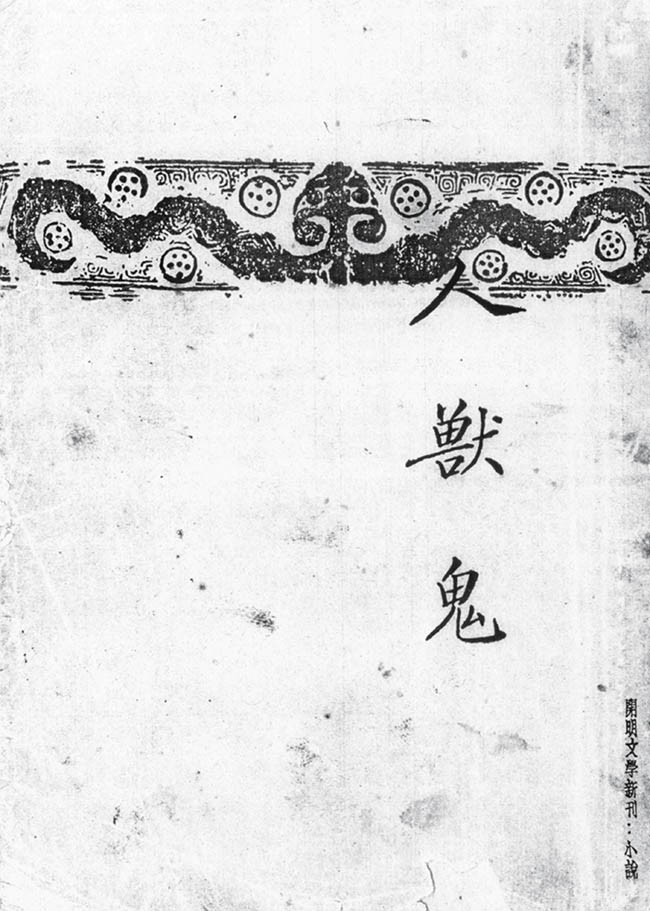 人獸鬼
開明文學新刊：小說